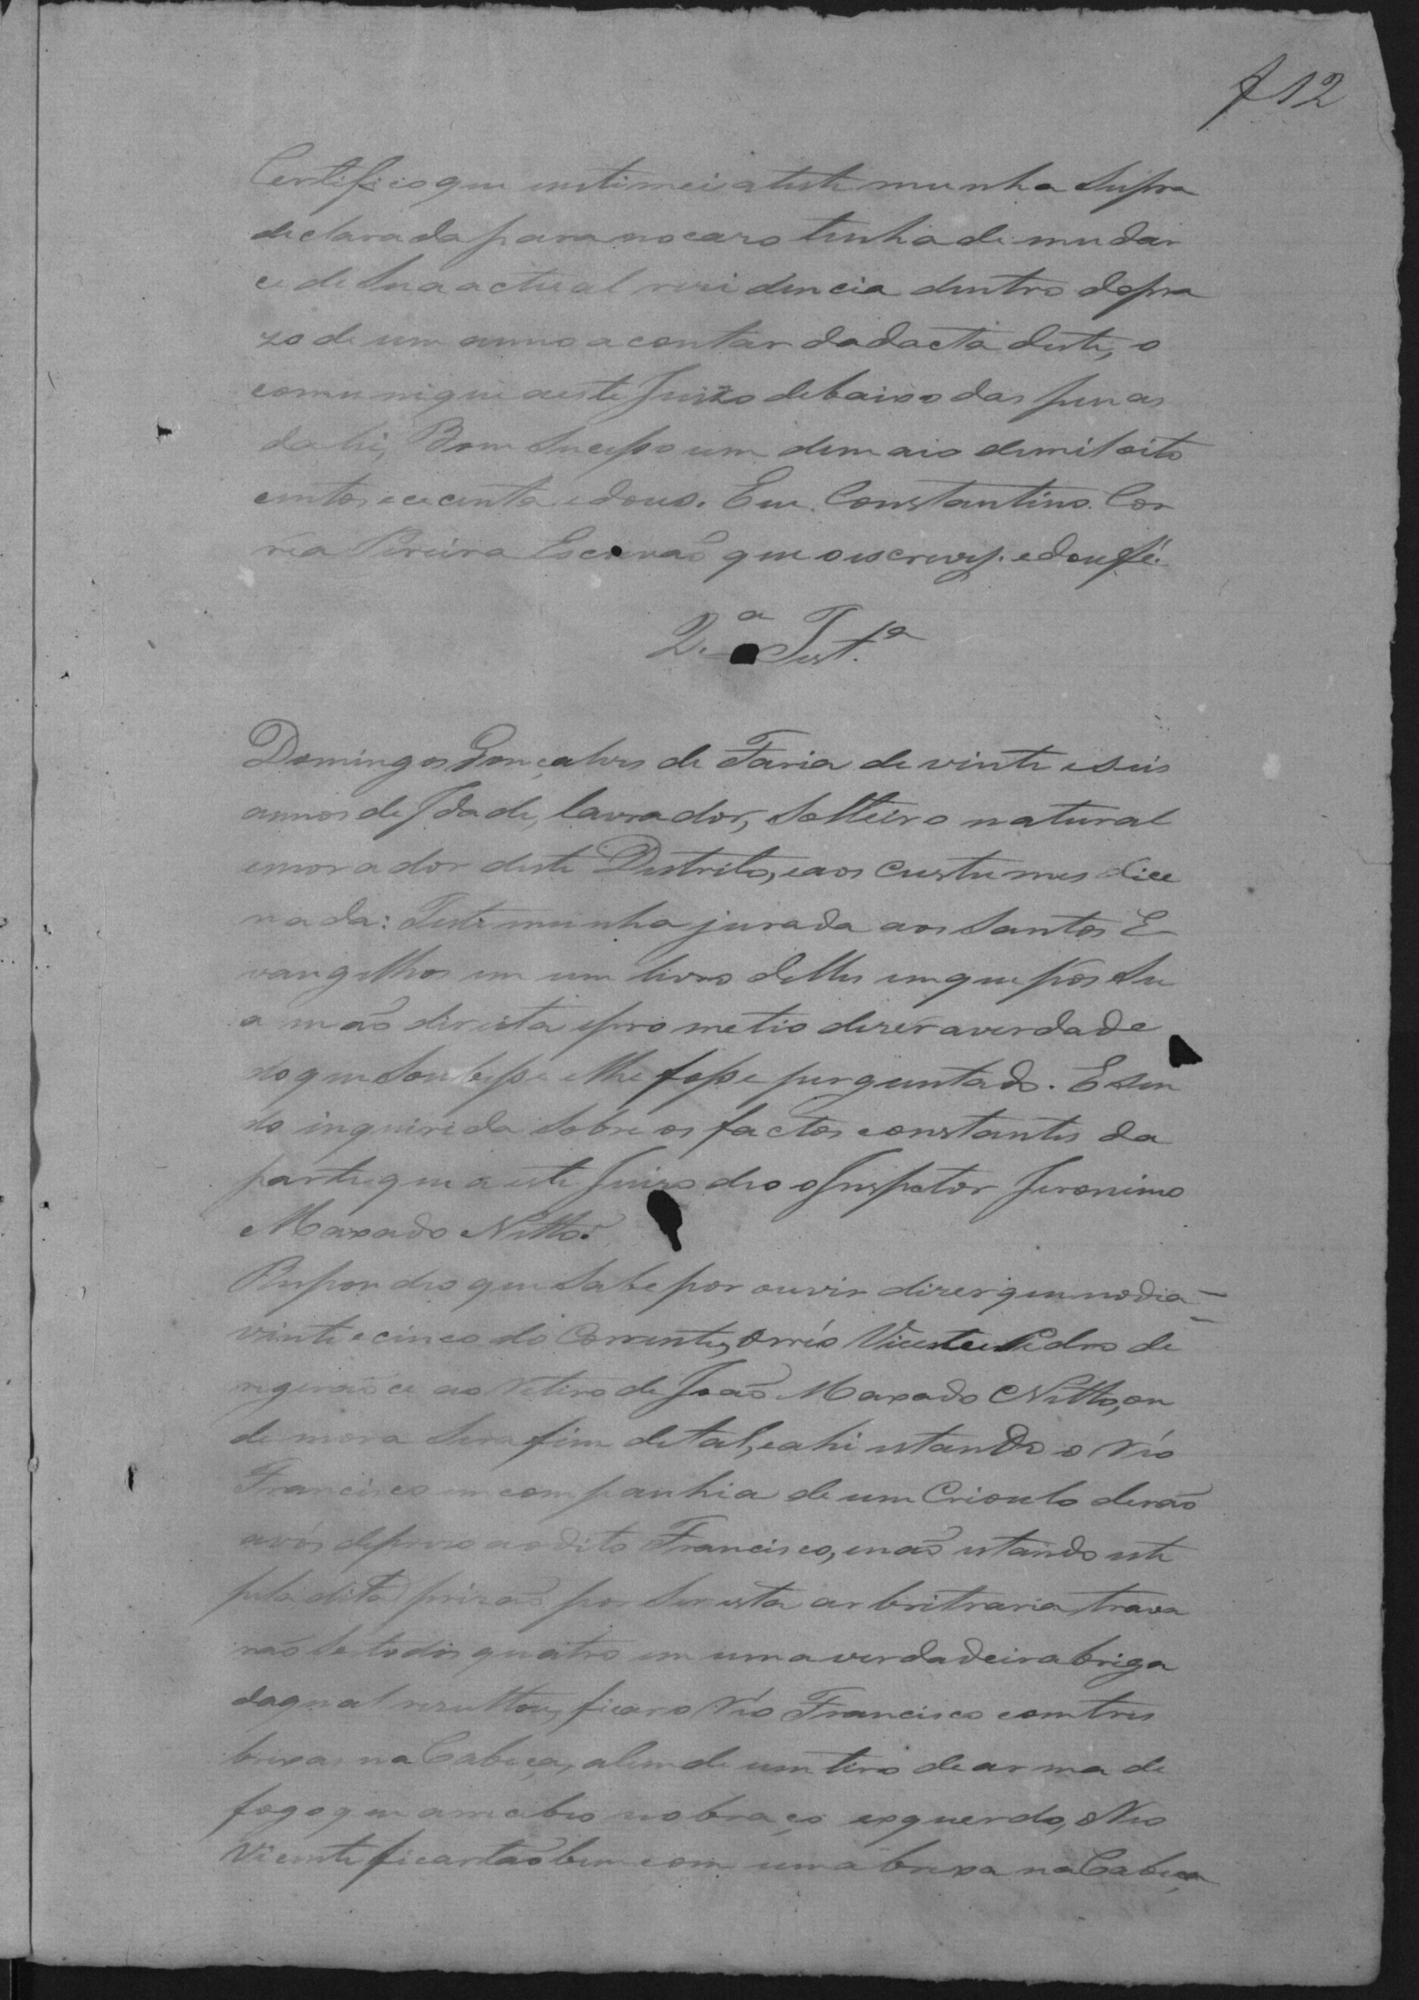 f 12
Certifico que intimei a testemunha supra
declarada para no cazo tenha de mudar
ce de sua actual rezidencia dentro do pra
zo de um anno a contar da dacta deste, o
comunique a este Juizo debaixo das penas
da lei, Bom Sucesso um de maio de mil oito
centos e cecenta e dous. Eu Constantino Cor
rêa Pereira Escrivaõ que o escrevy. e dou fé.
2.ª Test.ª
Domingos Gonçalves de Faria de vinte e seis
annos de Idade, lavrador, solteiro natural
e morador deste Destrito, e aos custumes dice
nada: Testemunha jurada aos Santos E
vangelhos em um livro delles em que pos su
a maõ direita e prometio dizer a verdade
do que soubesse e lhe fosse perguntado. E sen
do inquirida sobre os factos constantes da
parte que a este Juizo deo o Inspetor Jeronimo
Maxado Netto.
Respondeo que sabe por ouvir dizer que no dia
vinte e cinco do Corrente, o reo Vicente e Pedro de
rigeraõ ce ao Retiro de Joaõ Maxado Netto, on
de mora Serafim de tal, e ahi estando o reo
Francisco em companhia de um Crioulo deraõ
a vós de prezo ao dito Francisco, e naõ estando este
pela dita prizaõ por ser esta arbritraria trava
raõ se todos quatro em uma verdadeira briga
da qual rezultou, ficar o reo Francisco com tres
brexas na Cabeça, alem de um tiro de arma de
fogo que arrecebeo no braço esquerdo, o reo
Vicente ficar taõ bem com uma brexa na Cabeça,